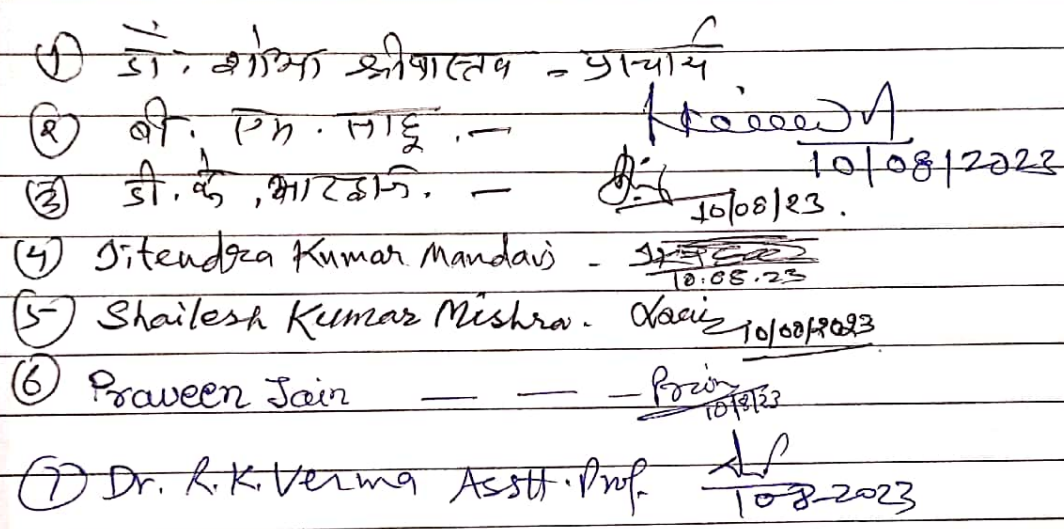 ① डॉ. शोभा श्रीवास्तव - प्राचार्य
② बी. एम. साहू . —
10/08/2023
③ डी. के . भारद्वाज. —
10/08/23.
④ Jitendra Kumar Mandavi -
10.08.23
⑤ Shailesh Kumar Mishra.
10/08/2023
⑥ Praveen Jain — — —
10/8/23
⑦ Dr. R.K. Verma Asstt. Prof.
10-8-2023